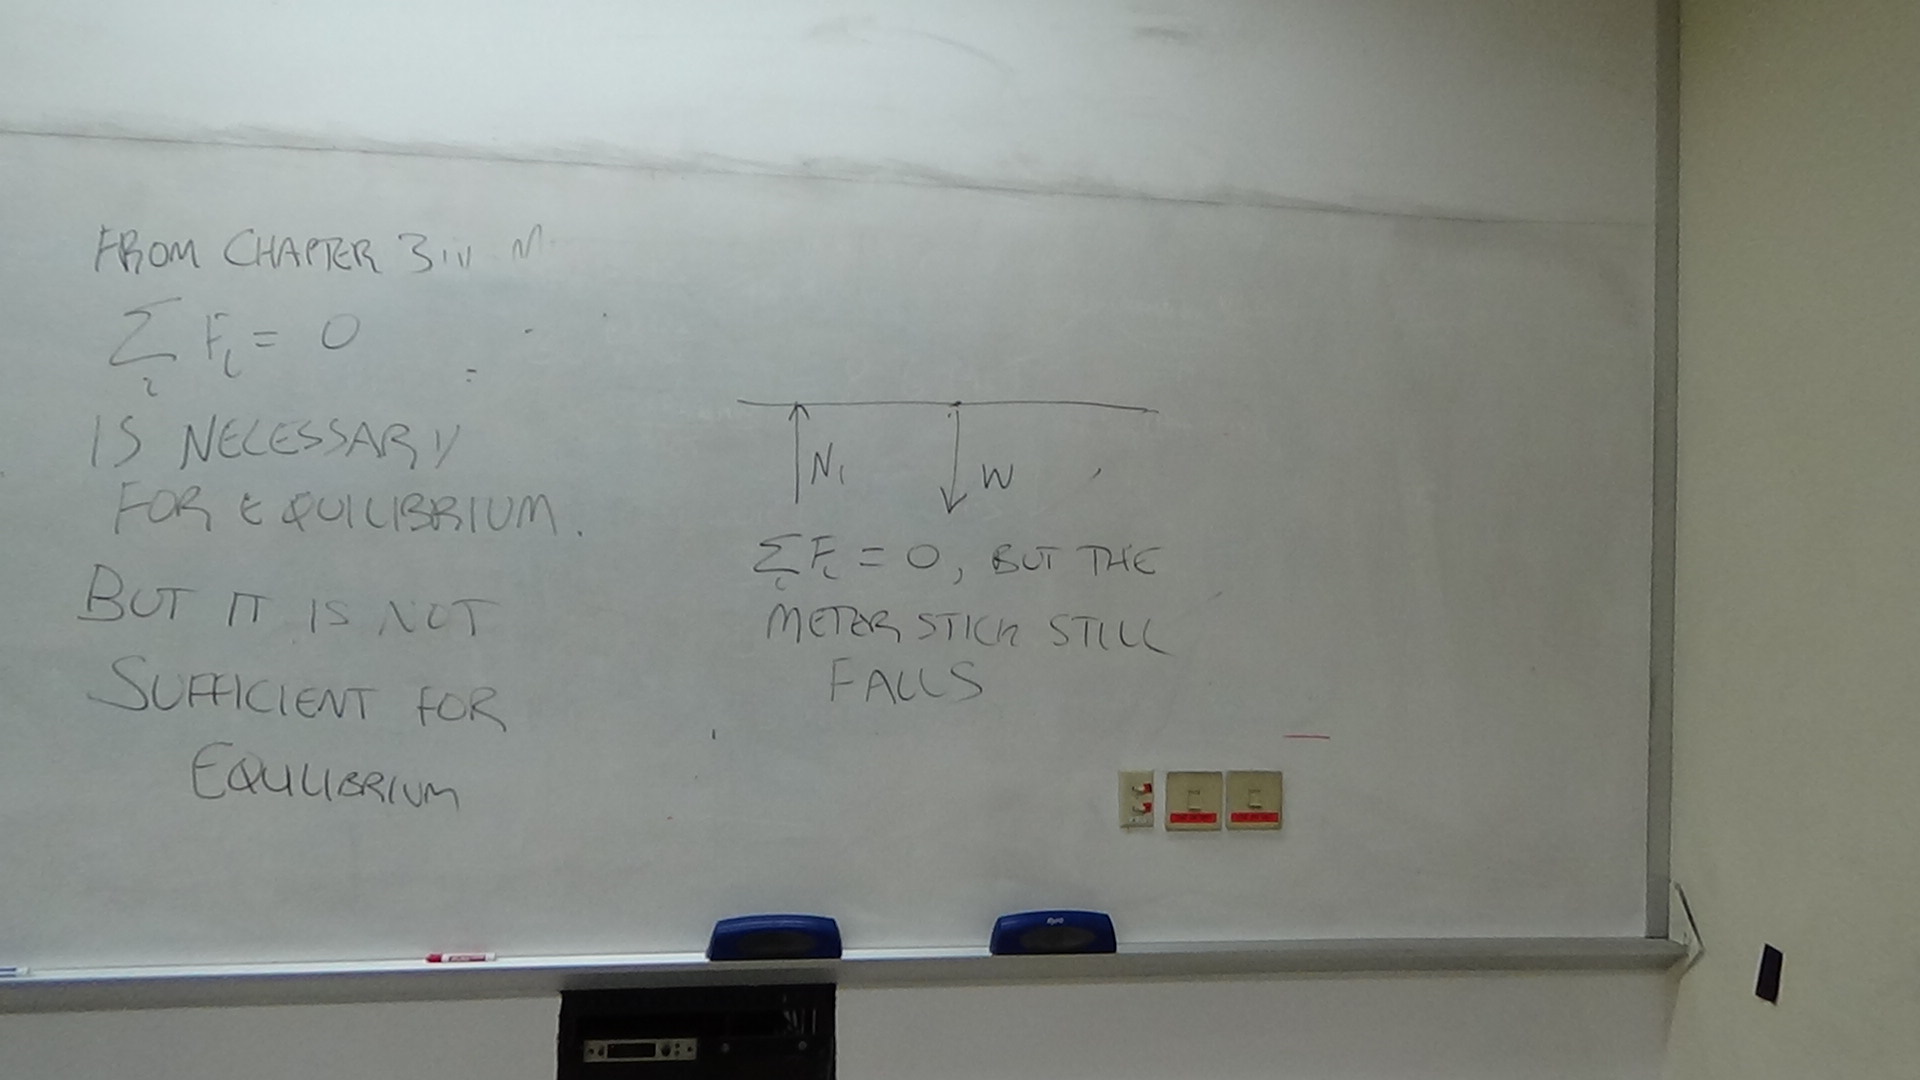 FROM CHAPTER 3
∑ Fi = 0
i
IS NECESSARY
FOR EQUILIBRIUM.
BUT IT IS NOT
SUFFICIENT FOR
EQUILIBRIUM
N1
W
∑ Fi = 0, BUT THE
i
METER STICK STILL
FALLS
expo